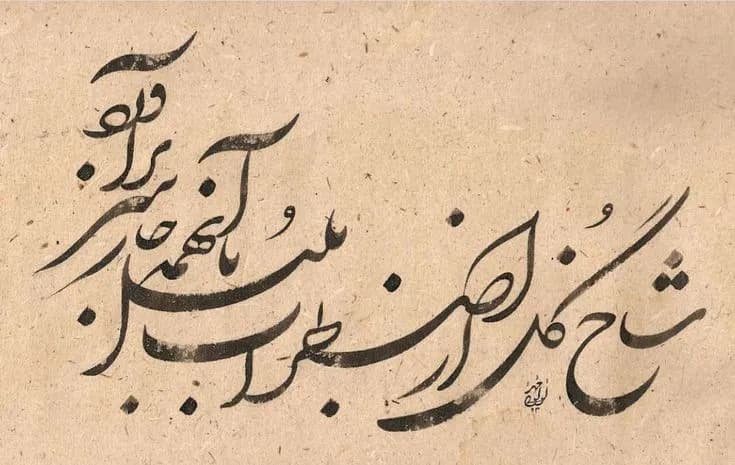 شاخ گُل از اضطراب بلبُل با آنهمه خار سر برآورد